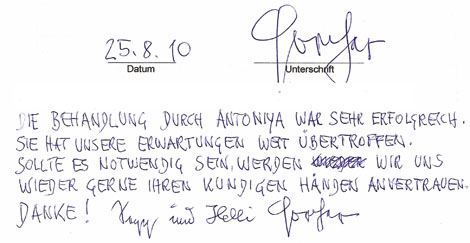 25.8.10
Datum Unterschrift
DIE BEHANDLUNG DURCH ANTONIYA WAR SEHR ERFOLGREICH.
SIE HAT UNSERE ERWARTUNGEN WEIT ÜBERTROFFEN.
SOLLTE ES NOTWENDIG SEIN, WERDEN WIR UNS
WIEDER GERNE IHREN KUNDIGEN HÄNDEN ANVERTRAUEN.
DANKE! und Helli